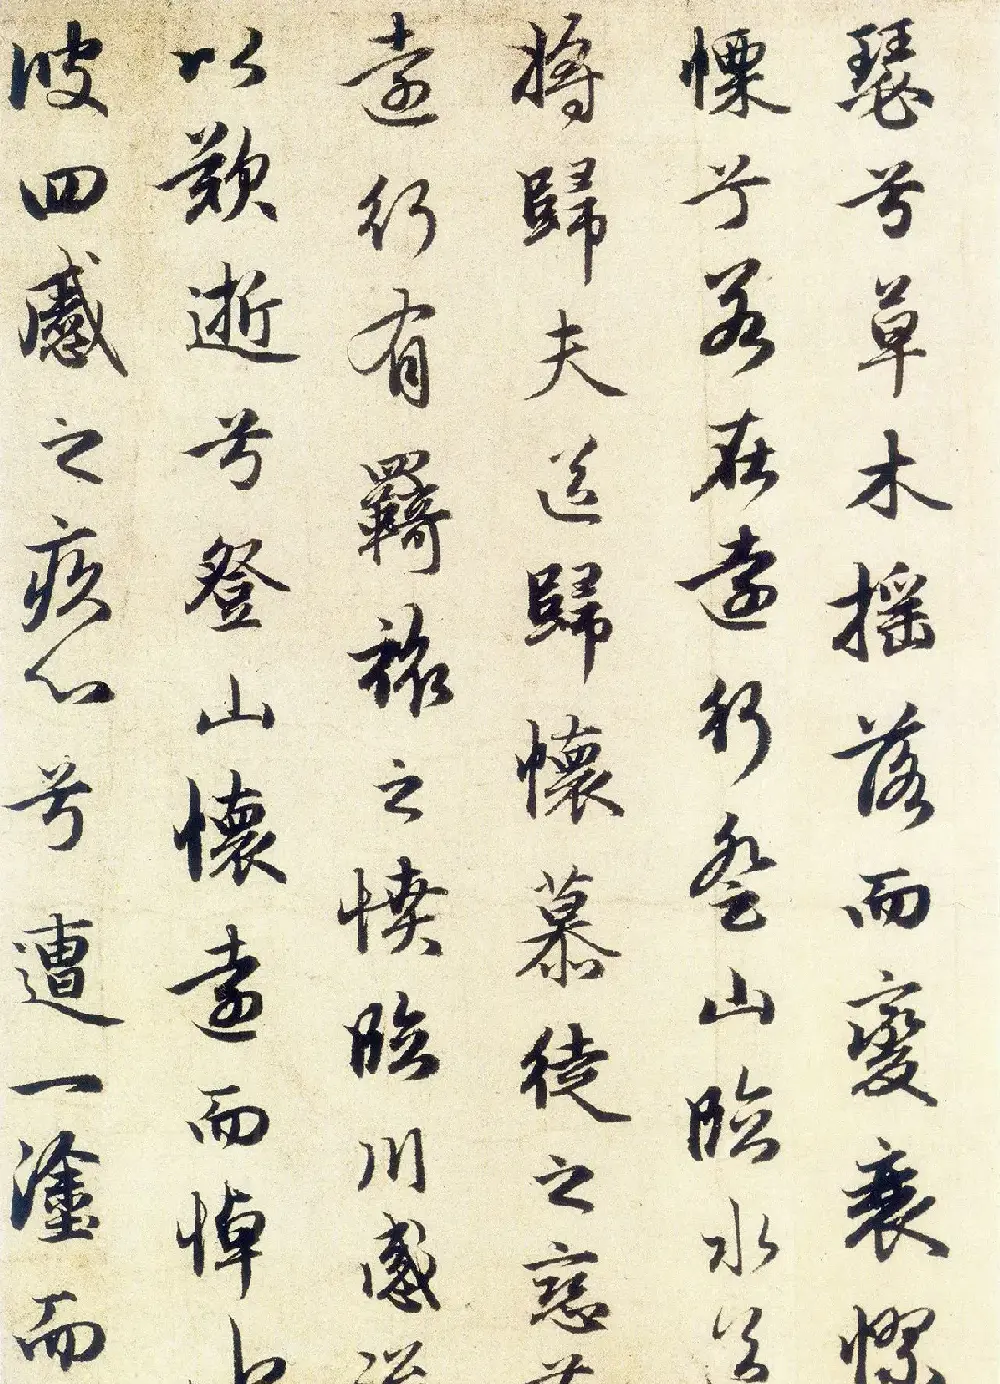 瑟兮草木摇落而變衰憭
慄兮若在遠行登山臨水送
將歸夫送歸懷慕徒之戀
遠行有羈旅之憤臨川感
以歎逝兮登山懷遠而悼
彼四慼之疚心兮遭一塗而